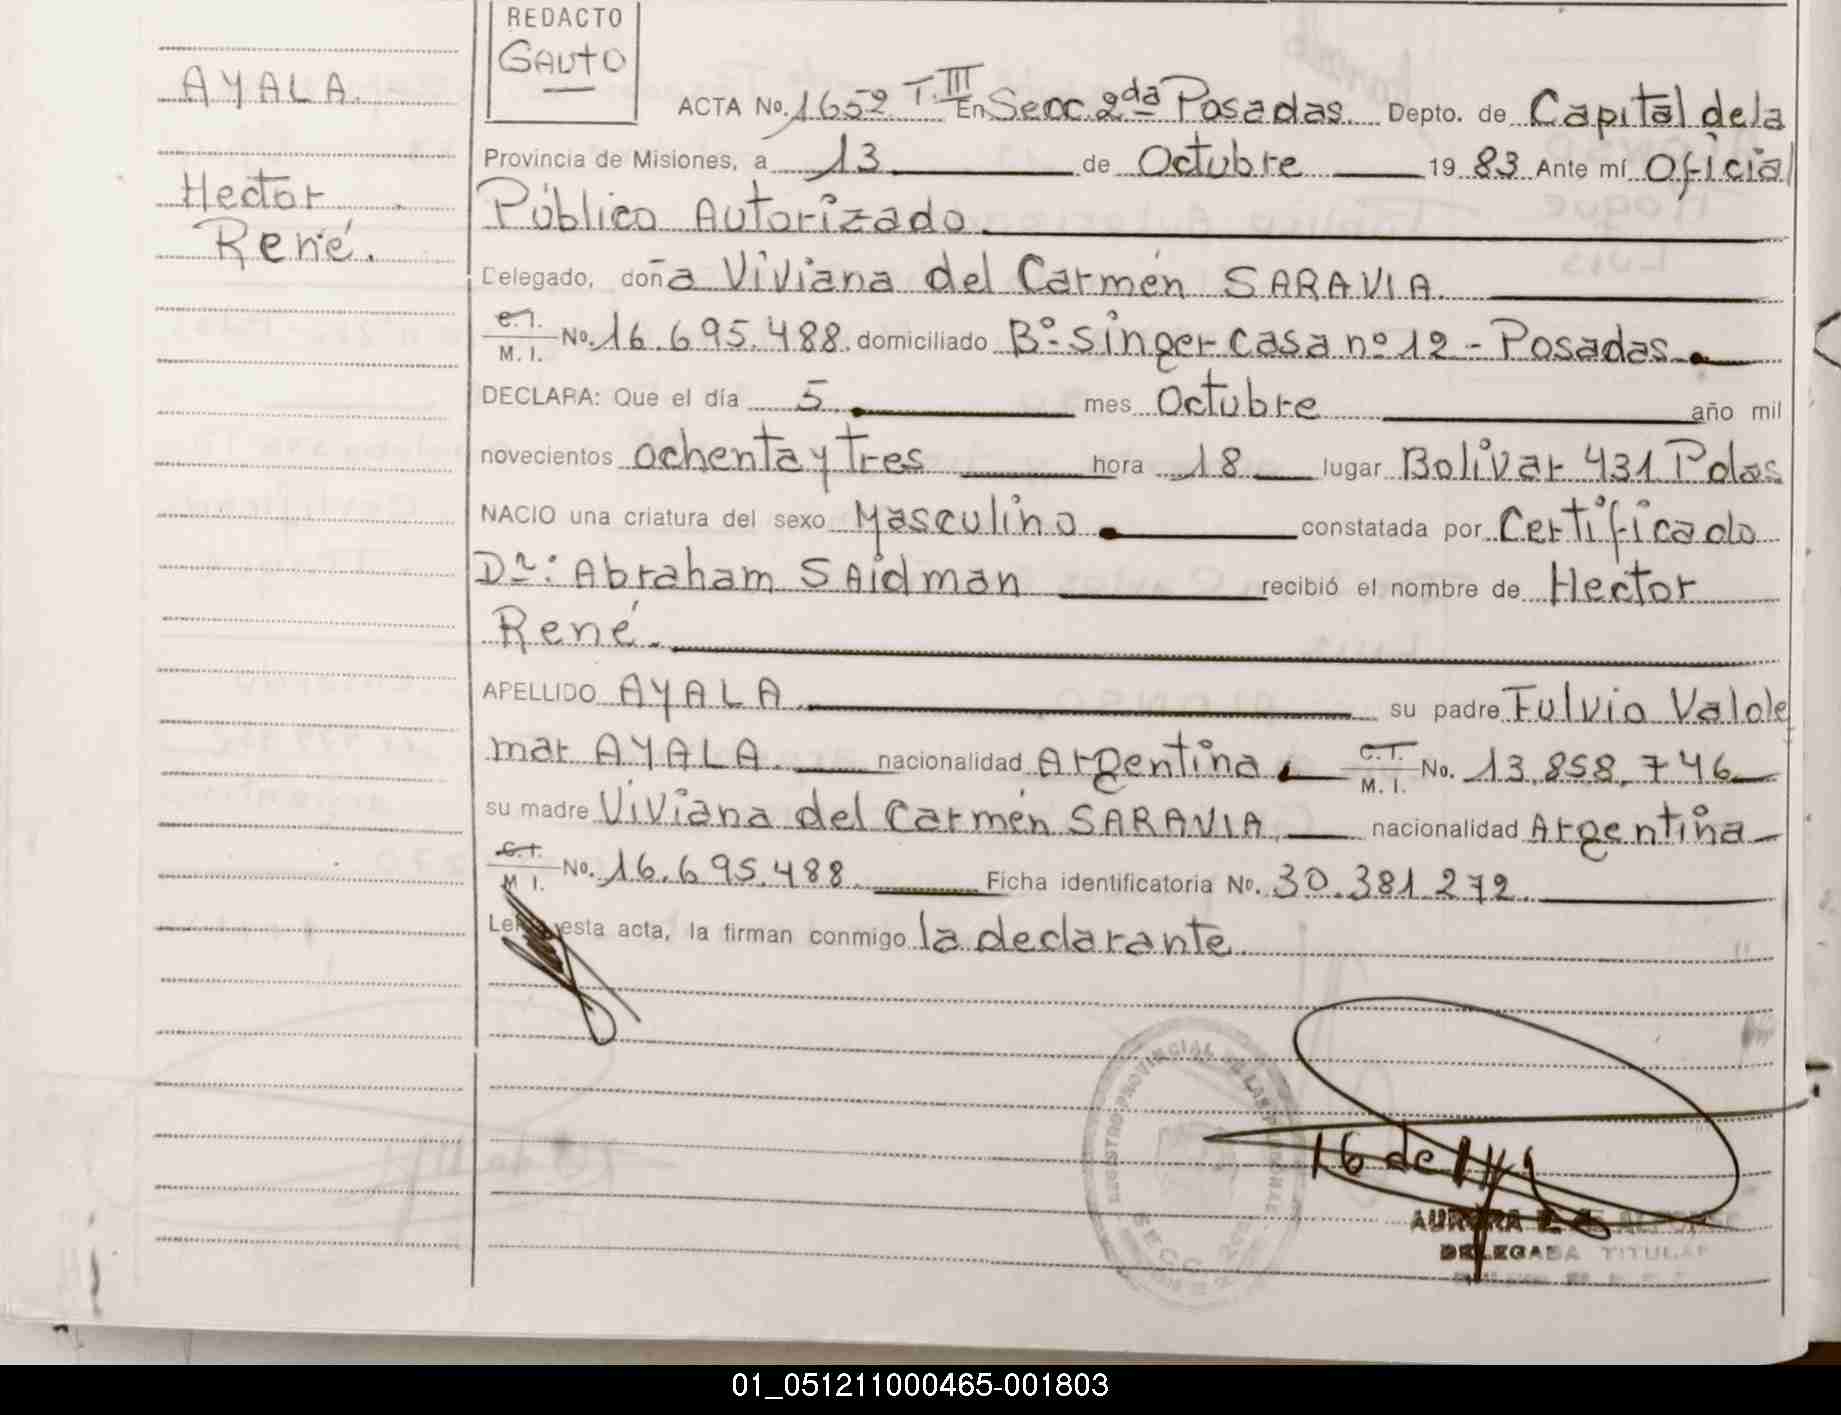 REDACTO
GAUTO
AYALA.
Hector
René.
ACTA No. 1652 T.III En Secc. 2da Posadas. Depto. de Capital de la
Provincia de Misiones, a 13 de Octubre 1983 Ante mí Oficial
Público Autorizado
Delegado, doña Viviana del Carmén SARAVIA.
C.I. M. I. No. 16.695.488. domiciliado Bº Singer casa nº 12 - Posadas
DECLARA: Que el día 5 mes Octubre año mil
novecientos ochenta y tres hora 18 lugar Bolivar 431 Pdas
NACIO una criatura del sexo Masculino constatada por Certificado
Dr: Abraham SAidman recibió el nombre de Hector
René.
APELLIDO AYALA su padre Fulvio Valde
mar AYALA. nacionalidad Argentina C.I. M. I. No. 13.858.746
su madre Viviana del Carmén SARAVIA, nacionalidad Argentina
C.I. M I. No. 16.695.488. Ficha identificatoria No. 30.381.272.
esta acta, la firman conmigo la declarante.
REGISTRO PROVINCIAL DE LAS PERSONAS
SECC. 2da
AURORA
DELEGADA TITULAR
01_051211000465-001803